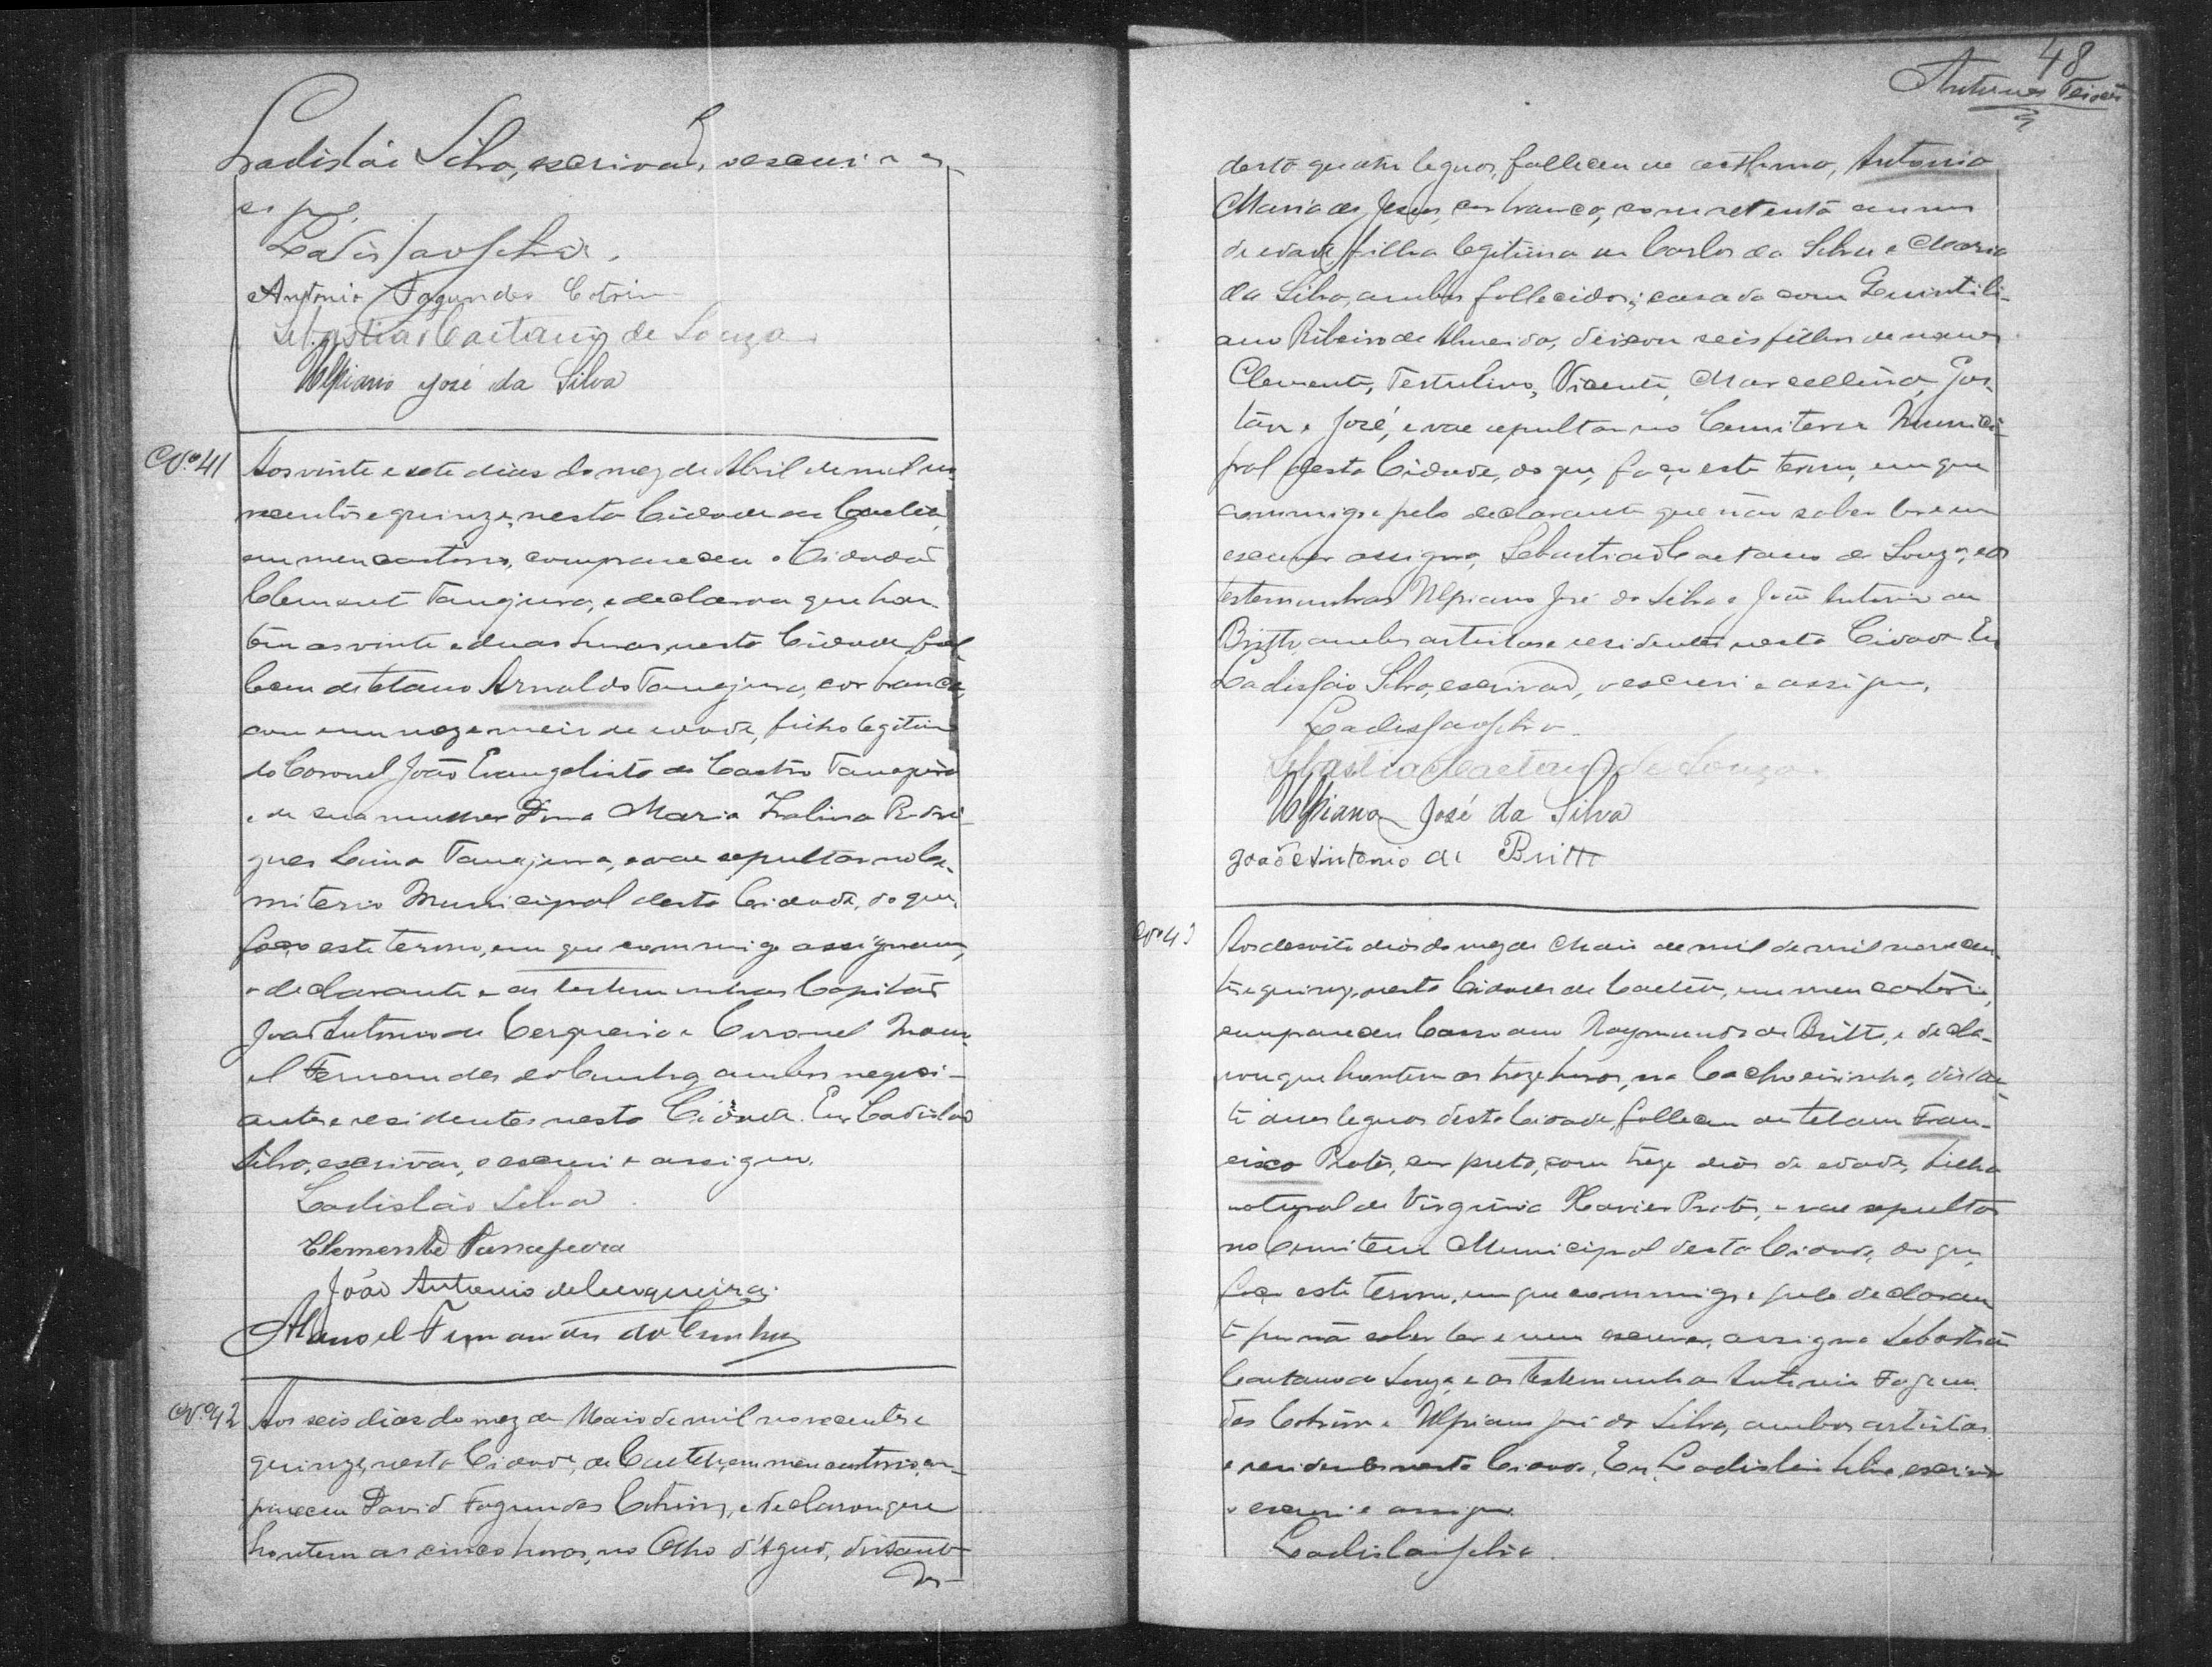 Ladisláo Silva, escrivão, o escrevi e as-
signo.
Ladisláo Silva.
Antonio Fagundes Cotrim
Sebastião Caetano de Souza
Ulpiano José da Silva
Nº 41 Aos vinte e sete dias do mez de Abril de mil no-
vecentos e quinze, nesta Cidade de Caeteté,
em meu cartorio, compareceu o Cidadão
Clemente Tanajura, e declarou que hon-
tem as vinte e duas horas, nesta Cidade, fal-
leceu de tetano Arnaldo Tanajura, cor branca,
com um mez e meio de edade, filho legitimo
do Coronel João Evangelista de Castro Tanajura
e de sua mulher Dona Maria Rodri-
gues Lima Tanajura, e vae sepultar no Ce-
miterio Municipal desta Cidade, do que,
faço este termo, em que commigo assignam,
o declarante e as testemunhas Capitão
João Antonio de Cerqueira e Coronel Mano-
el Fernandes da Cunha, ambos negoci-
antes e residentes nesta Cidade. Eu, Ladisláo
Silva, escrivão, o escrevi e assigno.
Ladisláo Silva
Clemente Tanajura
João Antonio de Cerqueira.
Manoel Fernandes da Cunha
Nº 42 Aos seis dias do mez de Maio de mil novecentos e
quinze, nesta Cidade, de Caeteté, em meu cartorio, com-
pareceu David Fagundes Cotrim, e declarou que
hontem as cinco horas, no Olho d'Agua, distante
des-
48
Antunes Teixeira
desta quatro leguas, falleceu de asthma, Antonia
Maria de Jesus, cor branca, com setenta annos
de edade, filha legitima de Carlos da Silva e Maria
da Silva, ambos fallecidos; casada com Quintili-
ano Ribeiro de Almeida, deixou seis filhos de nomes
Clemente, Tertulino, Vicente, Marcellina,
e José, e vae sepultar no Cemiterio Munici-
pal desta Cidade, do que, faço este termo, em que
commigo e pelo declarante que não saber ler e nem
escrever assigna, Sebastião Caetano de Souza, e as
testemunhas Ulpiano José da Silva e João Antonio de
Britto, ambos artistas e residentes nesta Cidade. Eu
Ladisláo Silva, escrivão, o escrevi e assigno.
Ladisláo Silva.
Sebastião Caetano de Souza.
Ulpiano José da Silva
João Antonio de Britto
Nº 43 Aos desoito dias do mez de Maio de mil de mil novecen-
tos e quinze, nesta Cidade de Caeteté, em meu cartorio,
compareceu Cassiano Raymundo de Britto, e decla-
rou que hontem as treze horas, na Cachoeirinha, distan-
te duas leguas desta Cidade, falleceu de tetano Fran-
cisco Prates, cor preta, com treze dias de edade, filho
natural de Virginia Xavier Prates, e vae sepultar
no Cemiterio Municipal desta Cidade, do que,
faço este termo, em que commigo e pelo declaran-
te por não saber ler e nem escrever, assigna Sebastião
Caetano de Souza, e as testemunhas Antonio Fagun-
des Cotrim e Ulpiano José da Silva, ambos artistas
e residentes nesta Cidade. Eu, Ladisláo Silva, escrivão
o escrevi e assigno.
Ladisláo Silva.